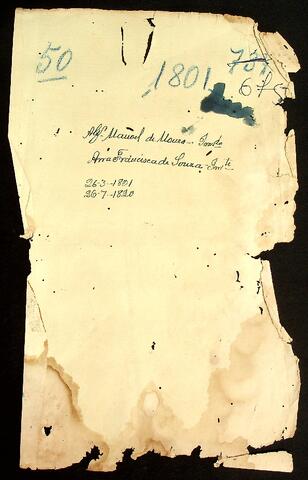 50
1801
Alfs. Manoel de Moura - Invdo
Anna Francisca de Souza - Invte
26-3-1801
26-7-1820